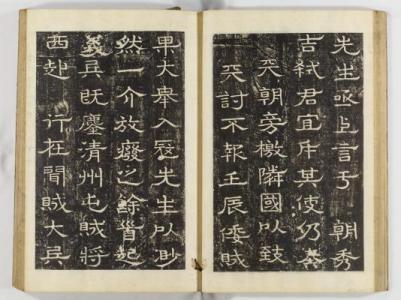 先生亟上言于 朝秀
吉弑君宜斥其使仍奏
天朝旁檄隣國以致
天討不報壬辰倭賊
果大舉入寇先生以眇
然一介放廢之餘首起
義兵既鏖清州屯賊將
西赴 行在聞賊大兵